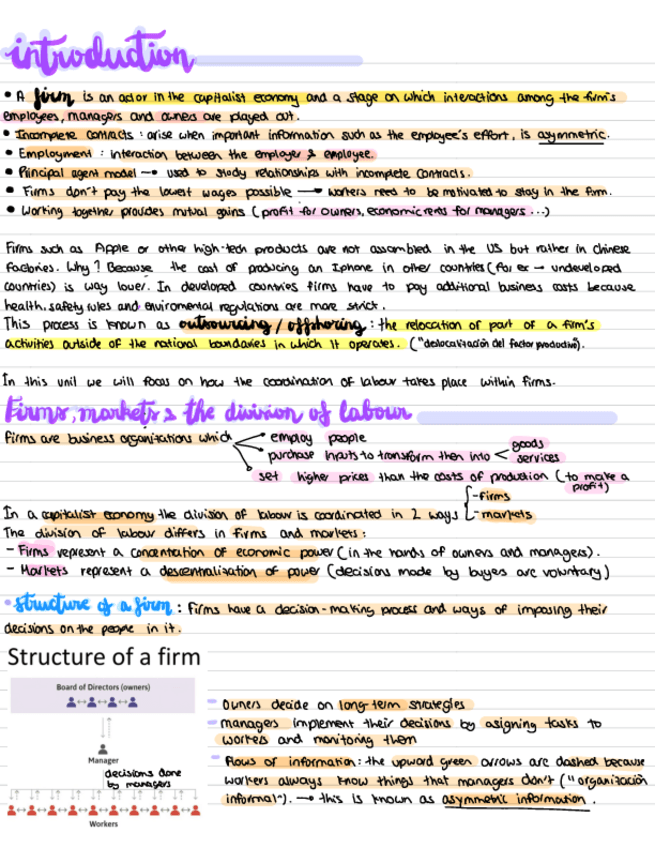 introduction
• A firm is an actor in the capitalist economy and a stage on which interactions among the firm's
employees, managers and owners are played out.
• Incomplete contracts : arise when important information such as the employee's effort, is asymmetric.
• Employment : interaction between the employer & employee.
• Principal agent model → used to study relationships with incomplete contracts.
• Firms don't pay the lowest wages possible → workers need to be motivated to stay in the firm.
• Working together provides mutual gains (profit for owners, economic rents for managers ...)
Firms such as Apple or other high-tech products are not assembled in the US but rather in chinese
factories. Why? Because the cost of producing an Iphone in other countries (for ex → undeveloped
countries) is way lower. In developed countries firms have to pay additional business costs because
health, safety rules and enviromental regulations are more strict.
This process is known as outsourcing / offshoring : the relocation of part of a firm's
activities outside of the national boundaries in which it operates. ("deslocalización del factor productivo").
In this unit we will focus on how the coordination of labour takes place within firms.
Firms, markets & the division of labour
Firms are business organizations which
employ people
purchase inputs to transform then into < goods
services
set higher prices than the costs of production (to make a
profit)
In a capitalist economy the division of labour is coordinated in 2 ways
-firms
-markets
The division of labour differs in firms and markets:
- Firms represent a concentration of economic power (in the hands of owners and managers).
- Markets represent a descentralization of power (decisions made by buyers are voluntary)
• structure of a firm : Firms have a decision-making process and ways of imposing their
decisions on the people in it.
Structure of a firm
Board of Directors (owners)
Manager
decisions done
by managers
Workers
- Owners decide on long-term strategies
- managers implement their decisions by asigning tasks to
workers and monitoring them
- Flows of information: the upward green arrows are dashed because
workers always know things that managers don't ("organización
informal"). → this is known as asymmetric information.